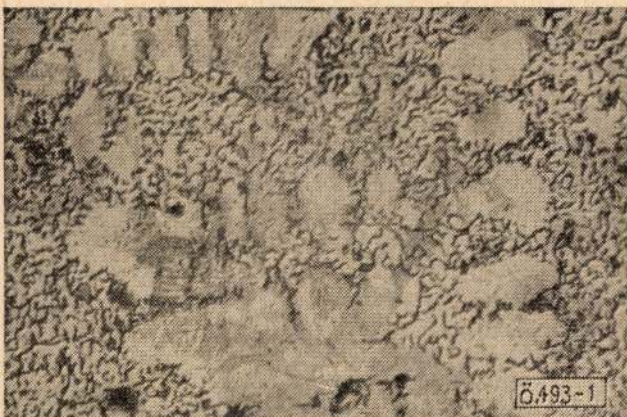 Ö.493-1